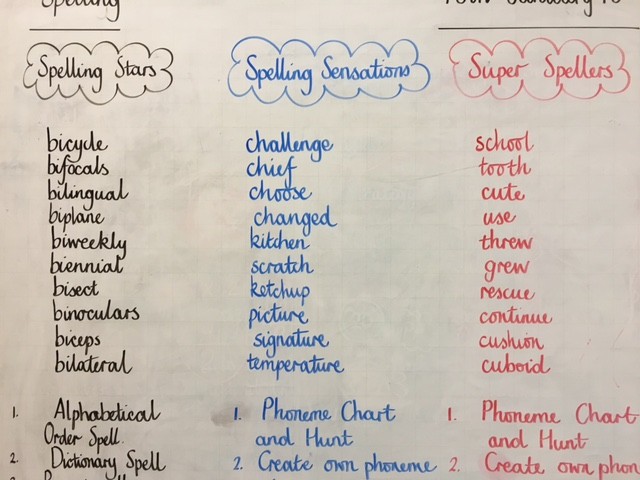 Spelling
Spelling Stars
bicycle
bifocals
bilingual
biplane
biweekly
biennial
bisect
binoculars
biceps
bilateral
1. Alphabetical
Order Spell.
2. Dictionary Spell
Spelling Sensations
challenge
chief
choose
changed
kitchen
scratch
ketchup
picture
signature
temperature
1. Phoneme Chart
and Hunt
2. Create own phoneme
Super Spellers
school
tooth
cute
use
threw
grew
rescue
continue
cushion
cuboid
1. Phoneme Chart
and Hunt
2. Create own phon